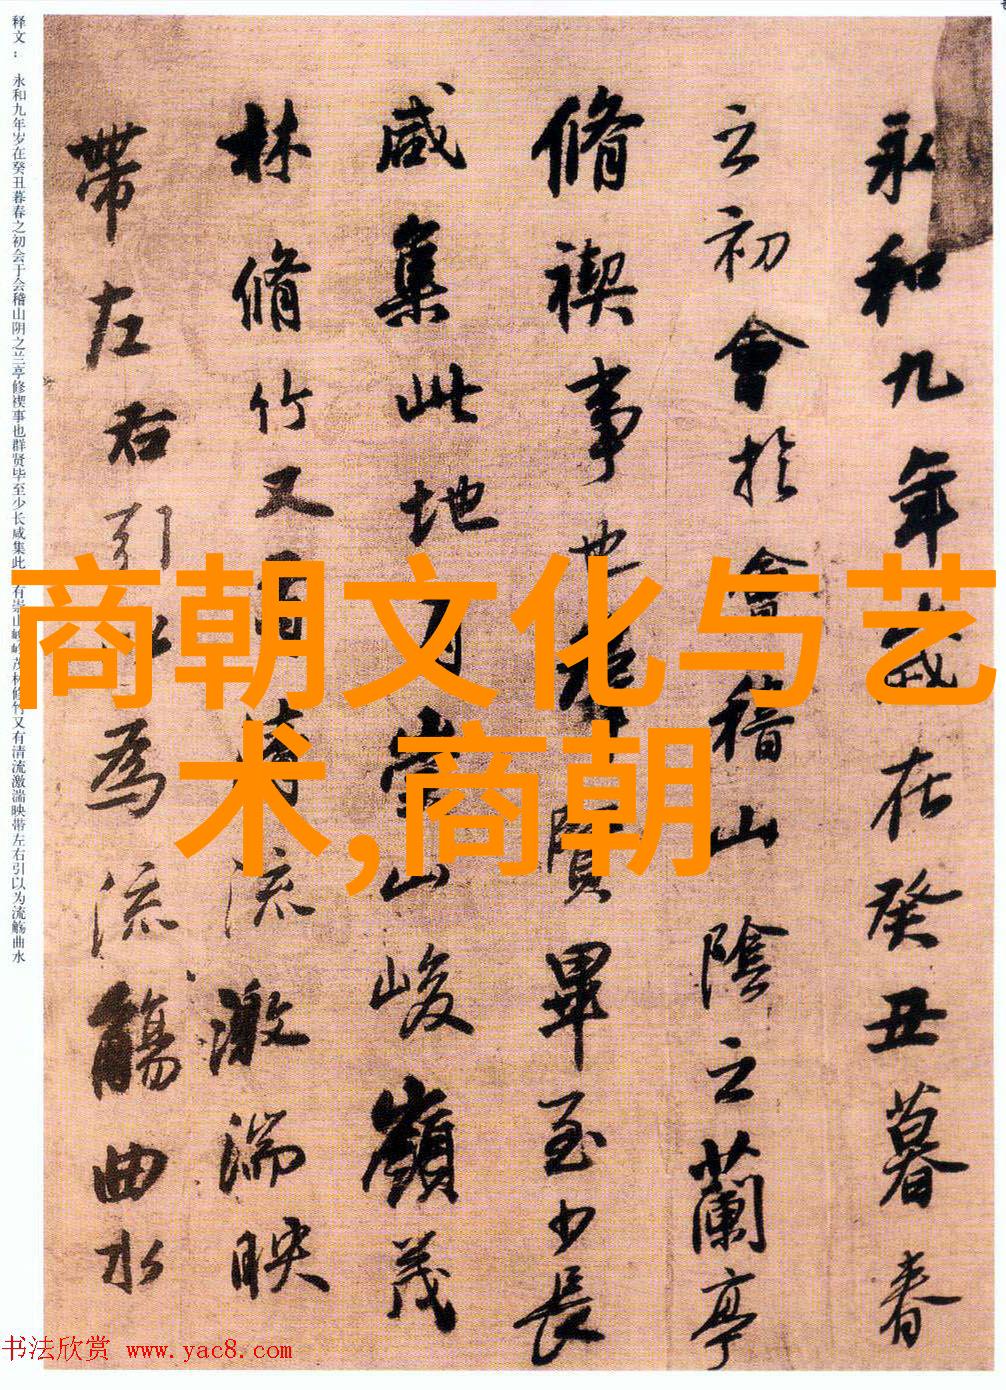 永和九年歲在癸丑暮春
之初會於會稽山陰之蘭亭
脩禊事也羣賢畢至少長
咸集此地有崇山峻嶺茂
林脩竹又有清流激湍映
帶左右引以為流觴曲水
释文： 永和九年岁在癸丑暮春之初会于会稽山阴之兰亭修禊事也群贤毕至少长咸集此有崇山峻岭茂林修竹又有清流激湍映带左右引以为流觞曲水
商朝文化与艺
术,商朝
书法欣赏 www.yac8.com